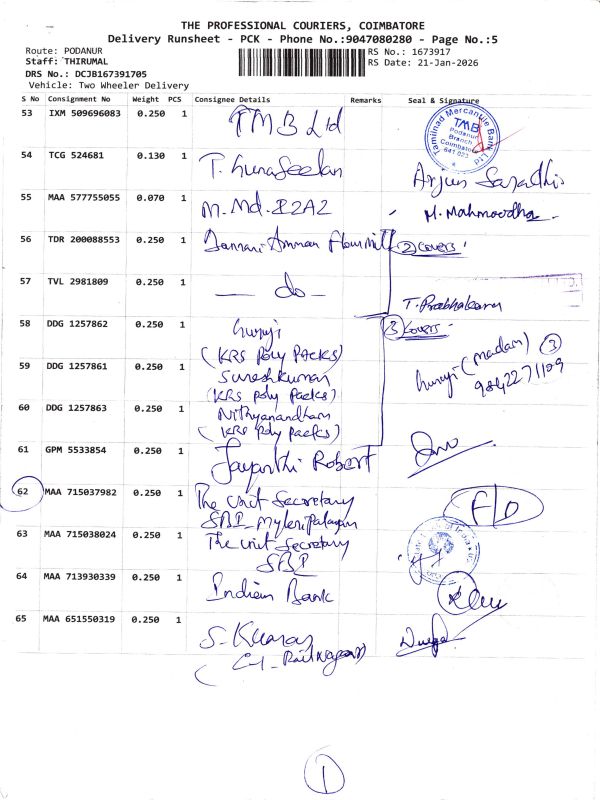 THE PROFESSIONAL COURIERS, COIMBATORE
Delivery Runsheet - PCK - Phone No.:9047080280 - Page No.:5
Route: PODANUR
RS No.: 1673917
Staff: THIRUMAL
RS Date: 21-Jan-2026
DRS No.: DCJB167391705
Vehicle: Two Wheeler Delivery
S No Consignment No Weight PCS Consignee Details Remarks Seal & Signature
53 IXM 509696083 0.250 1 TMB Ltd
Tamilnad Mercantile Bank Ltd
TMB
Podanur
Branch
Coimbatore
641 023
54 TCG 524681 0.130 1 T. Gunaseelan
Arjun Sarathi
55 MAA 577755055 0.070 1 M. Md.
M. Mahmoodha
56 TDR 200088553 0.250 1 Bannari Amman Flour Mill 2 covers
57 TVL 2981809 0.250 1 — do —
T. Prabhakaran
58 DDG 1257862 0.250 1
3 covers
(KRS Poly Packs)
(madam) 3
59 DDG 1257861 0.250 1 Sureshkumar
9842271109
(KRS Poly Packs)
60 DDG 1257863 0.250 1 Nithyanandham
(KRS Poly Packs)
61 GPM 5533854 0.250 1 Jayanthi Robert
62 MAA 715037982 0.250 1 The Unit Secretary
F/D
SBI
63 MAA 715038024 0.250 1 The Unit Secretary
SBI
64 MAA 713930339 0.250 1 Indian Bank
65 MAA 651550319 0.250 1 S. Kumar
1